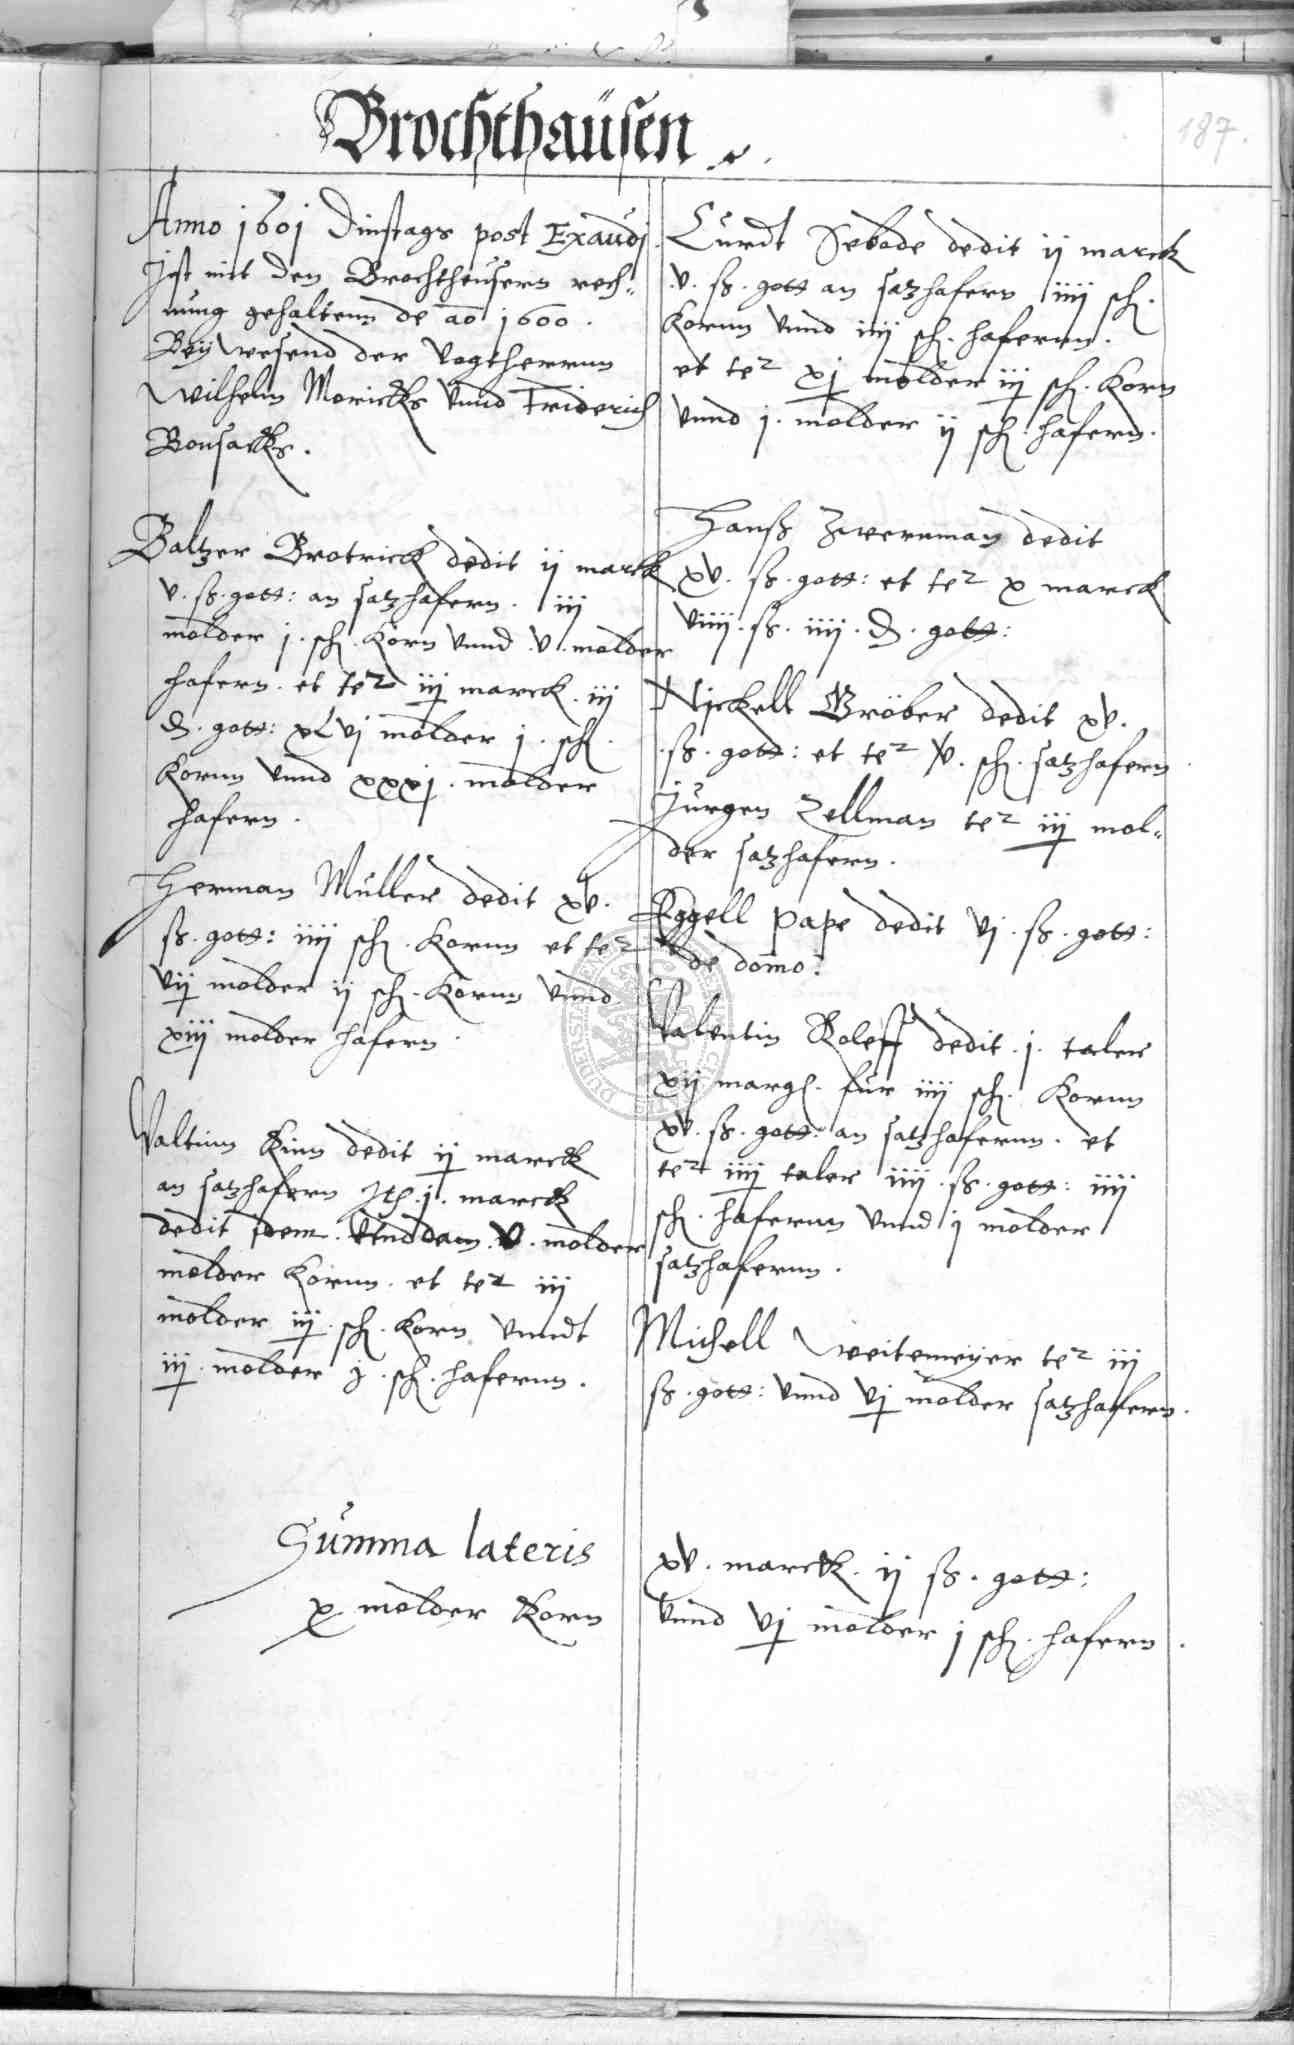 Brochthausen
187.
Anno 1601 Dinstags post Exaudj
Ist mit den Brochtheusern rech-
nung gehaltenn de ao 1600.
Beywesend der Vogtherrnn
Wilhelm Moricks vnnd Friderich
Bonsacks.
Baltzer Brotrick dedit ij marck
v. ß. gott: an satzhafern. iij
molder j. sch. Korn vnnd v. molder
hafern. et te2 iij marck. iij
d. gott: xLvj molder j. sch.
Kornn vnnd xxxj. molder
hafern.
Herman Muller dedit xv.
ß. gott: iiij sch. Kornn et te2
vij molder ij sch. Kornn vnnd
xiij molder hafern.
Valtinn Kinn dedit ij marck
an satzhafern Itt. j. marck
dedit idem. vnd dam. v. molder
molder Kornn. et te2 iij
molder iij. sch. Korn vnndt
iij. molder j. sch. hafernn.
Summa lateris
x molder Korn
Curdt Sebode dedit ij marck
v. ß. gott an satzhafern iiij sch.
Kornn vnnd iiij sch. hafernn.
et te2 xj molder iij sch. Korn
vnnd j. molder ij sch. hafern.
Hanß Zwernman dedit
xv. ß. gott: et te2 x marck
viiij. ß. iiij. d. gott:
Nickell Gröber dedit xv.
ß. gott: et te2 v. sch. satzhafern
Jurgen Zellman te2 iij mol-
der satzhafern.
Eggell Pape dedit vj. ß. gott:
de domo:
Valentin Roleff dedit. j. taler
xij margl. fur iiij sch. Kornn
xv. ß. gott: an satzhafernn. et
te2 iiij taler iiij. ß. gott: iiij
sch. hafernn vnnd j molder
satzhafernn.
Michell Weitemeyer te2 iij
ß. gott: vnnd vj molder satzhafern.
xv. marck. ij ß. gott:
vnnd vj molder j sch. hafern.